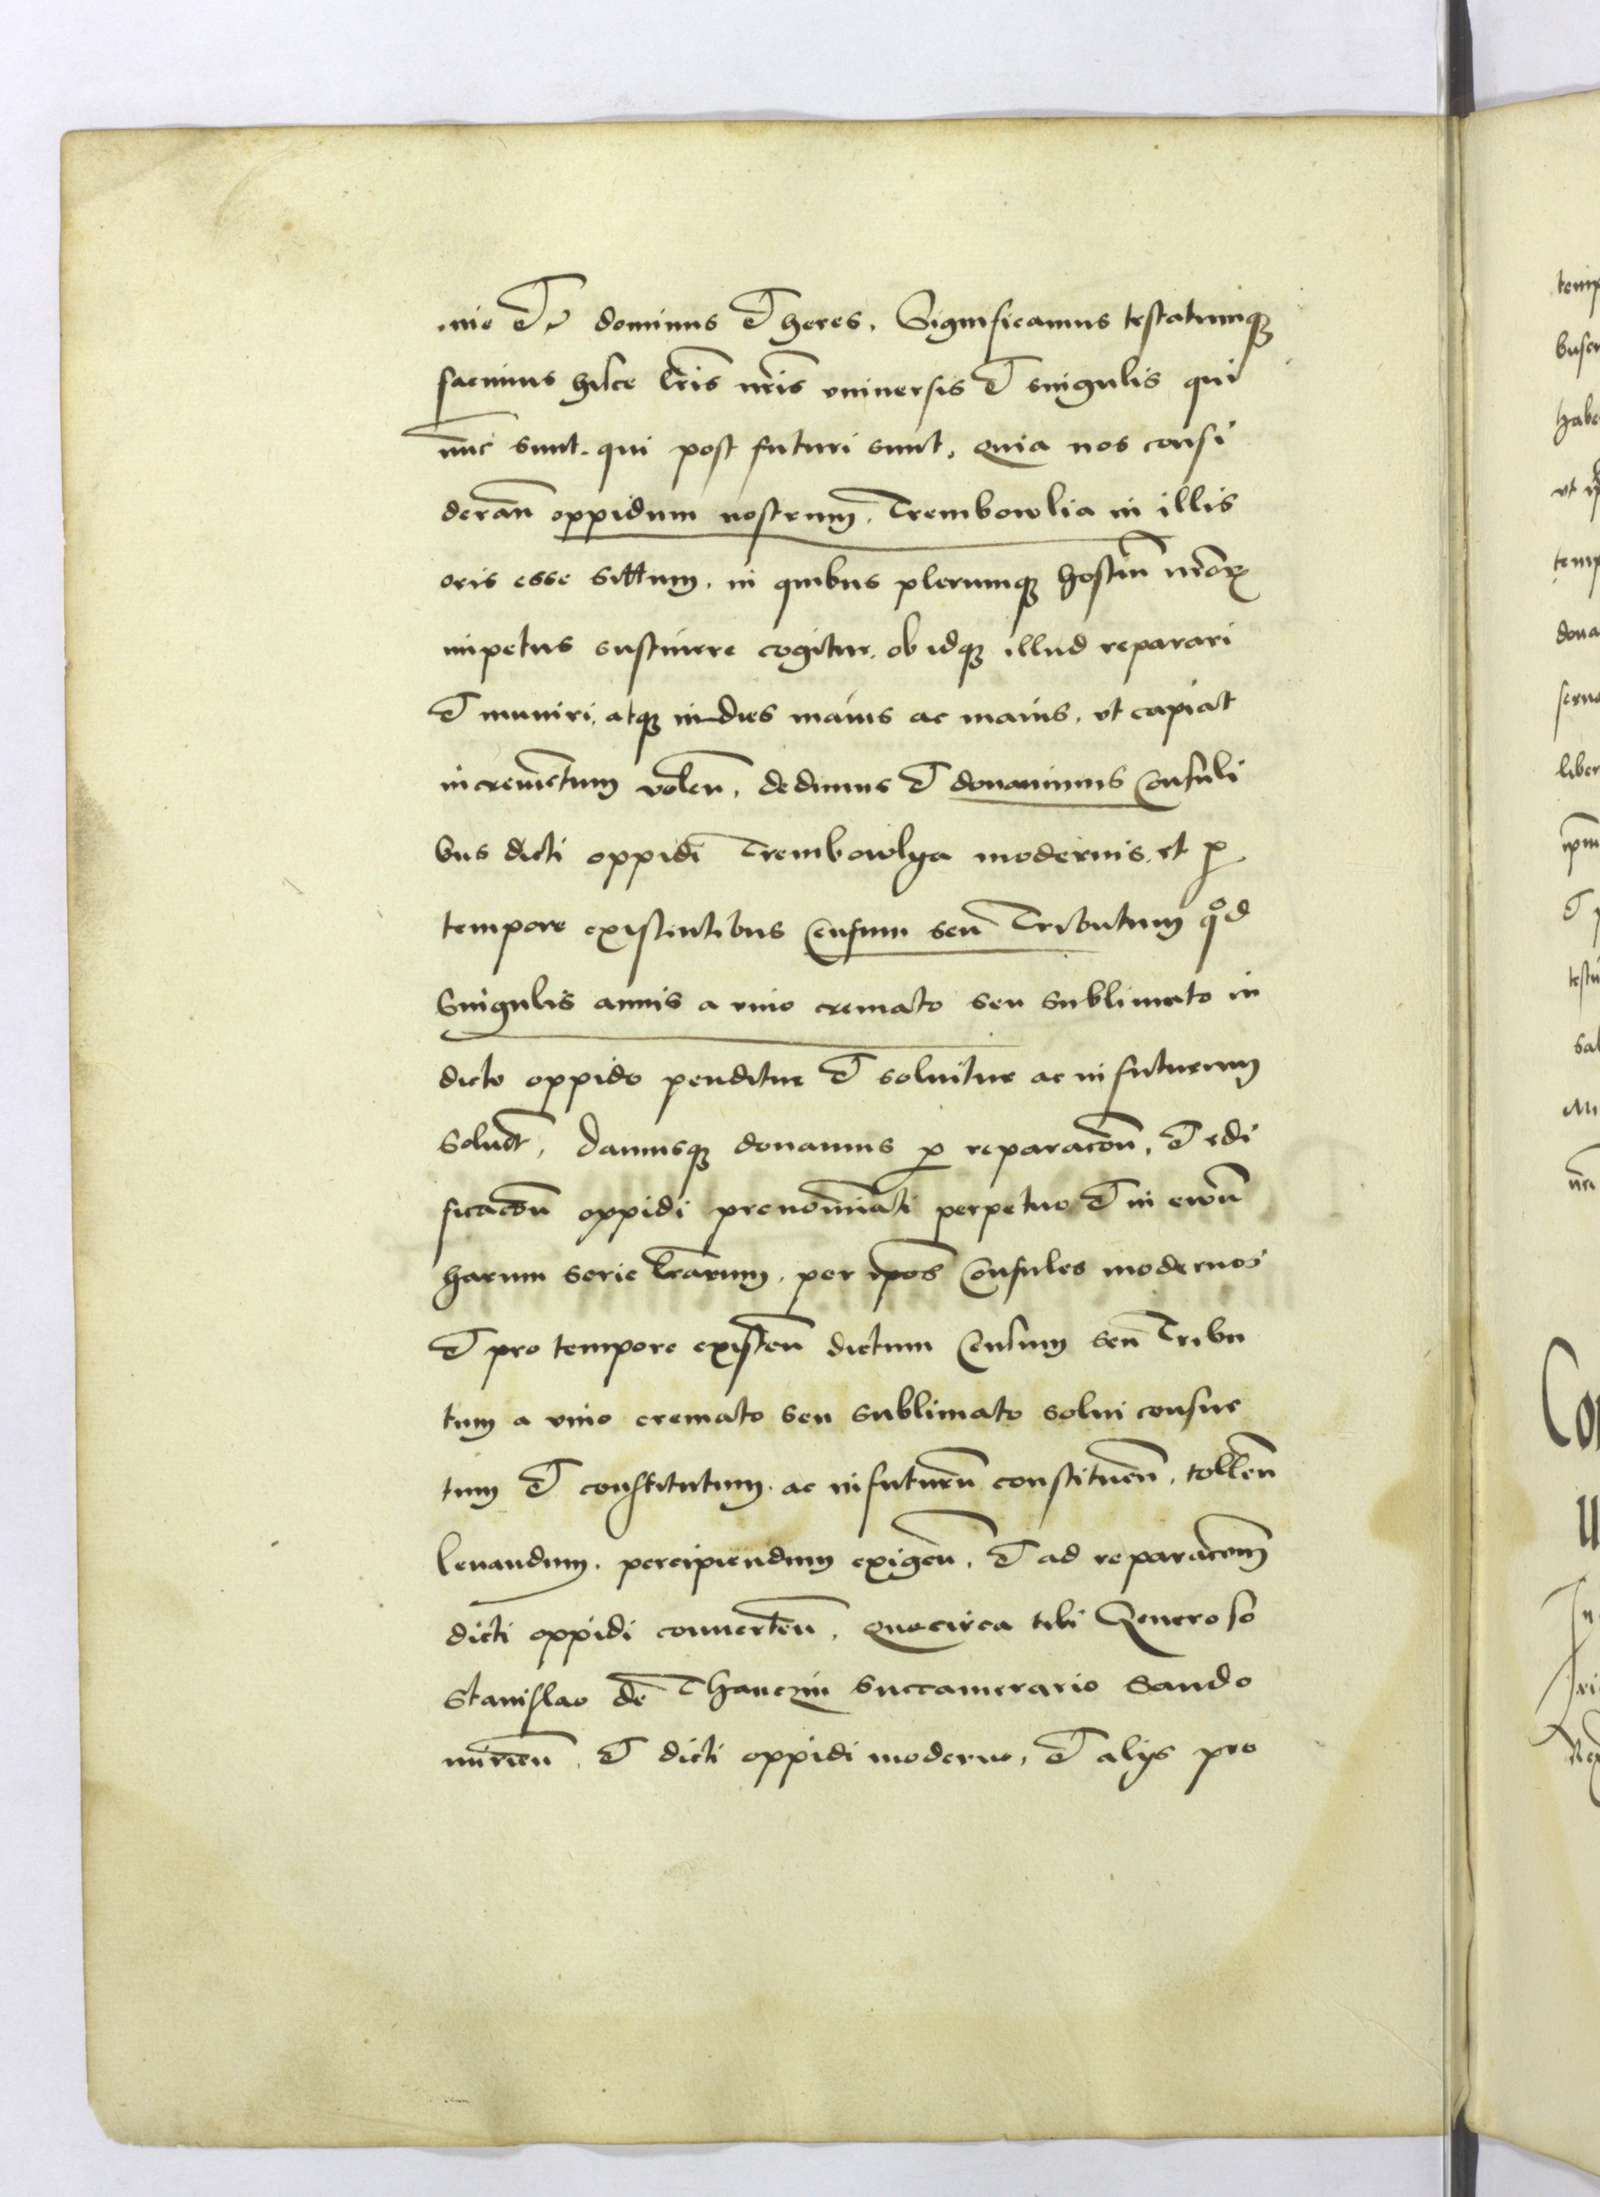 nie etc dominus et heres. Significamus testatumque
facimus hisce lris nris vniuersis et singulis qui
nunc sunt. qui post futuri sunt, quia nos consi
deran oppidum nostrum Trembowlia in illis
oris esse sittum. in quibus plerumque hostiu nror
impetus sustinere cogitur. ob idque illud reparari
et muniri. atque indies maius ac maius. vt capiat
incrementum volen, dedimus et donauimus Consuli
bus dicti oppidi Trembowlya modernis. et p
tempore existentibus Censum seu Tributum quod
Singulis annis a vino cremato seu sublimato in
dicto oppido penditur et soluitur ac in futurum
soluet, Damusque donamus p reparacon, et edi
ficacon oppidi prenominati perpetuo et in ewu
harum serie lrarum. per ipos Consules modernos
et pro tempore existen dictum Censum seu Tribu
tum a vino cremato seu sublimato solui consue
tum et constitutum. ac in futuru constituen. tollen
leuandum. percipiendum exigen. et ad reparacem
dicti oppidi conuerten. Quocirca tibi Generoso
Stanislao de Thanczin Succamerario Sando
mirien. et dicti oppidi moderno, et alys pro
temp
vt
temp
dona
liber
ipm
et